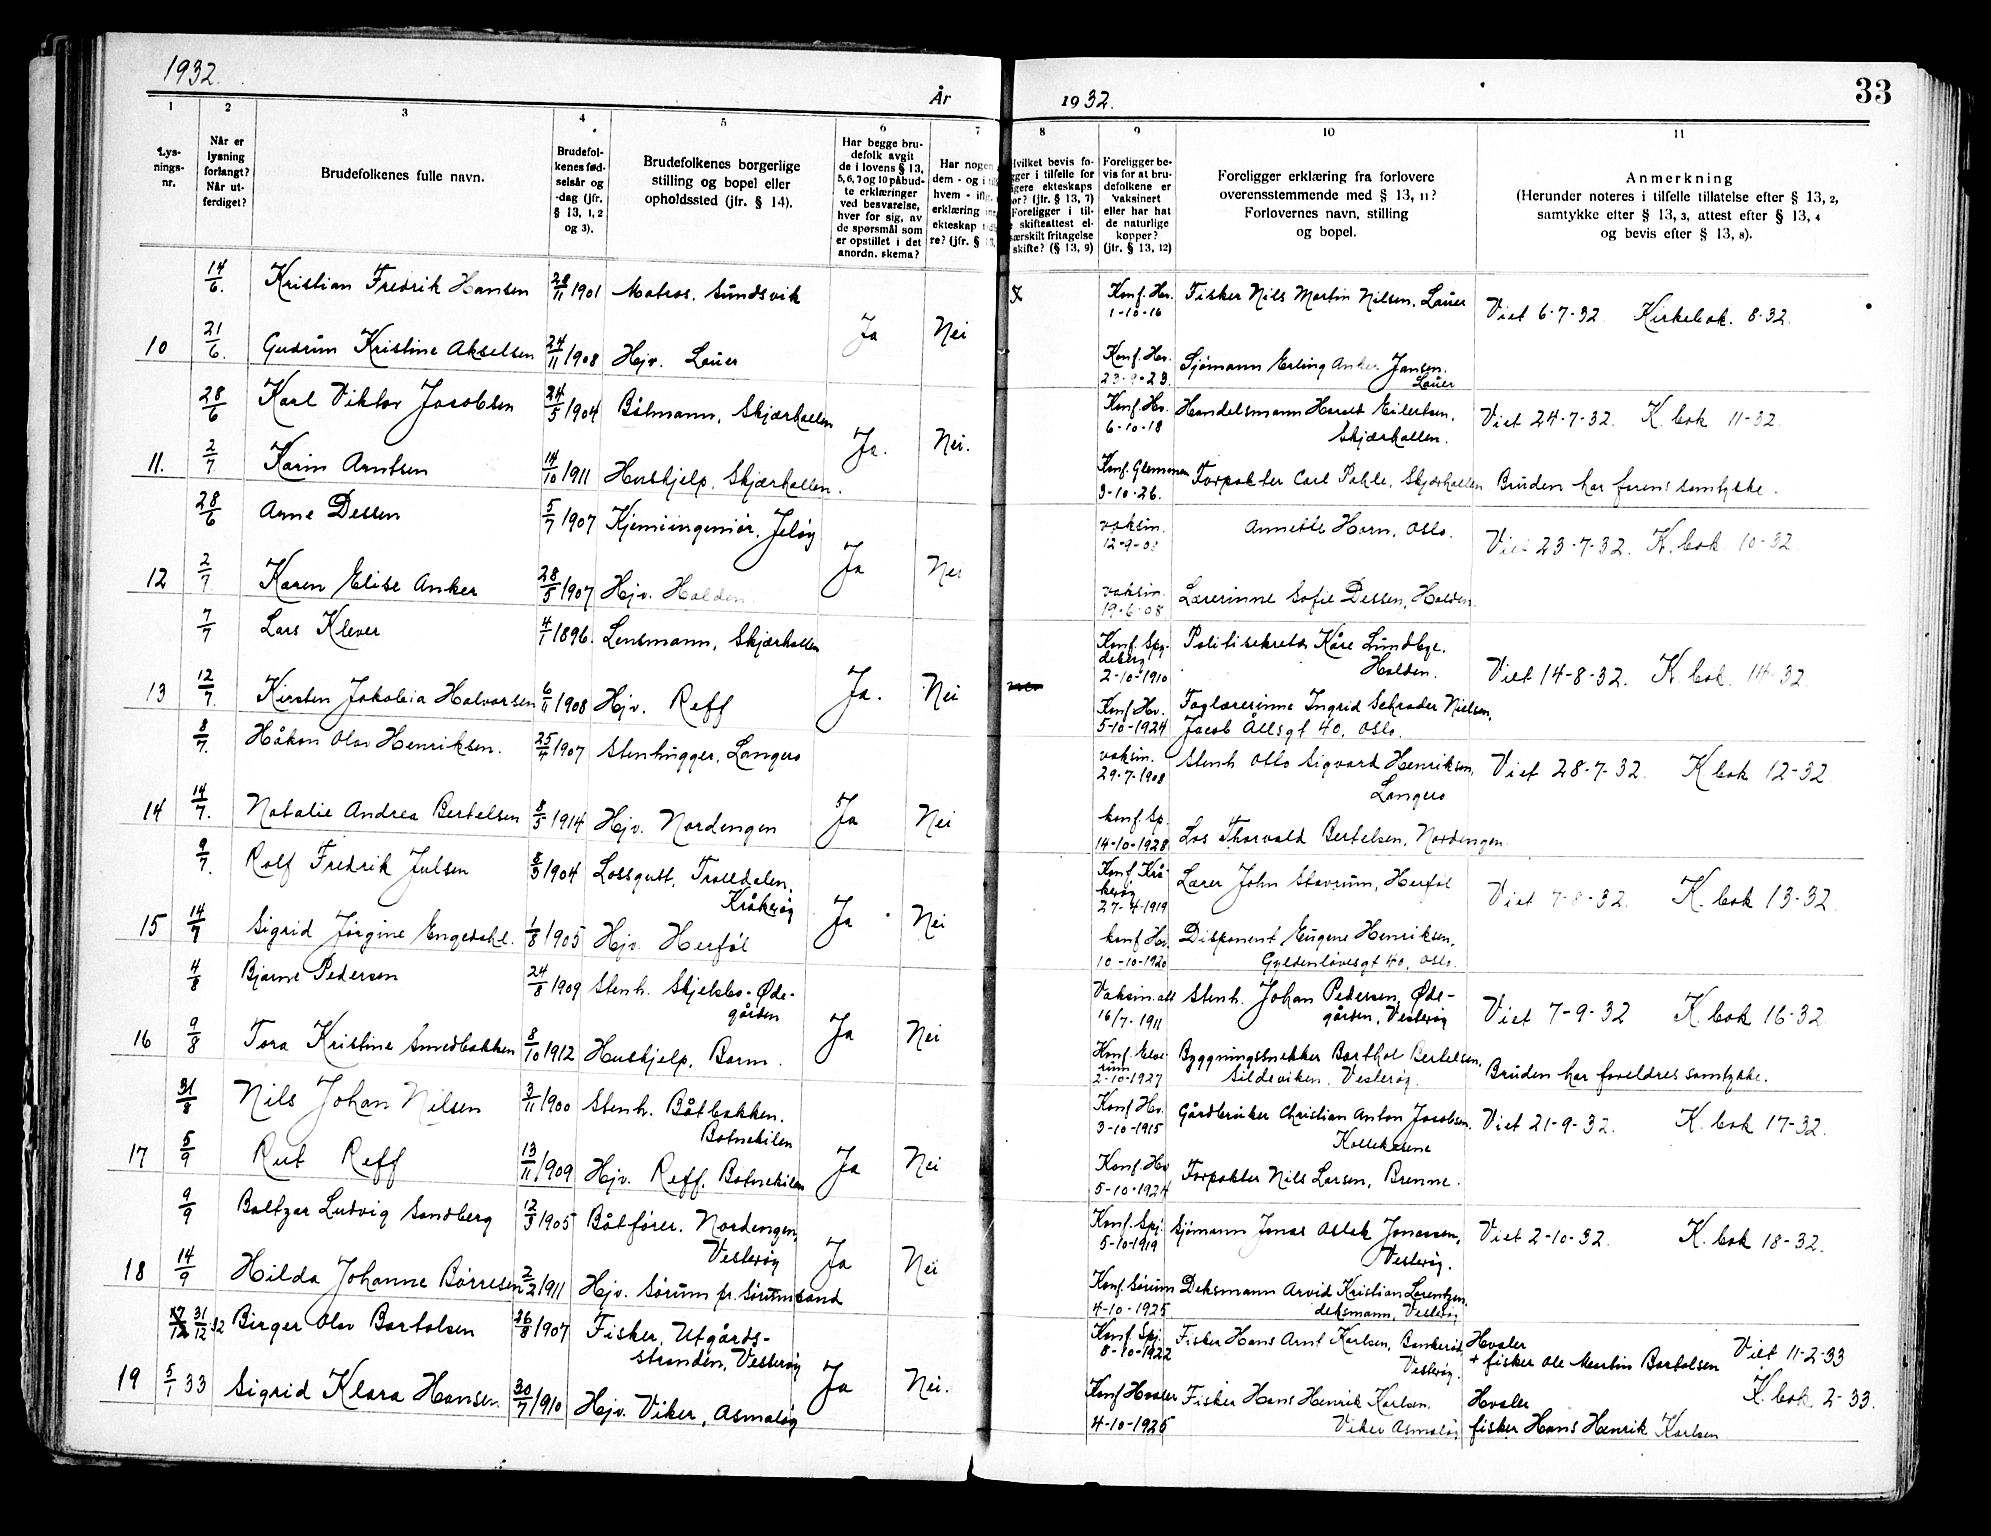 1932.
År
1932.
33
1
2
3
4
5
6
7
8
9
10
11
Lys-
nings-
nr.
Når er
lysning
forlangt?
Når ut-
ferdiget?
Brudefolkenes fulle navn.
Brudefol-
kenes fød-
selsår og
-dag (jfr.
§ 13, 1, 2
og 3).
Brudefolkenes borgerlige
stilling og bopel eller
opholdssted (jfr. § 14).
Har begge bru-
defolk avgit
de i lovens § 13,
5, 6, 7 og 10 påbud-
te erklæringer
ved besvarelse,
hver for sig, av
de spørsmål som
er opstillet i det
anordn. skema?
Har nogen
dem - og i
hvem - ifl.
erklæring
ekteskap
re? (jfr. § 13,
Hvilket bevis fo-
gger i tilfelle for
igere ekteskaps
or? (jfr. § 13, 7)
Foreligger i til-
skifteattest el-
særskilt fritagelse
skifte? (§ 13, 9)
Foreligger be-
vis for at bru-
defolkene er
vaksinert
eller har hat
de naturlige
kopper?
(jfr. § 13, 12)
Foreligger erklæring fra forlovere
overensstemmende med § 13, 11?
Forlovernes navn, stilling
og bopel.
Anmerkning
(Herunder noteres i tilfelle tillatelse efter § 13, 2,
samtykke efter § 13, 3, attest efter § 13, 4
og bevis efter § 13, 8).
14/6. Kristian Fredrik Hansen 28/11 1901 Matros, Sundsvik Konf. Hv. 1-10-16 Fisker Nils Martin Nilsen, Lauer Viet 6-7-32. Kirkebok. 8-32.
10 21/6. Gudrun Kristine Akselsen 24/11 1908 Hjv. Lauer Ja Nei Konf. Hv. 23-9-23. Sjømann Erling Anker Jansen.
Lauer
28/6 Karl Viktor Jacobsen 24/5 1904 Båtmann, Skjærhallen Konf. Hv. 6-10-18 Handelsmann Harald Eilertsen, Viet 24-7-32. K. bok 11-32.
Skjærhallen.
11. 2/7 Karin Arntsen 14/10 1911 Huskjelp, Skjærhallen. Ja. Nei. Konf. Glemmen 3-10-26. Forpakter Carl Pahle, Skjærhallen Bruden har farens samtykke.
28/6 Arne Dessen 5/7 1907 Kjemiingeniør, Jeløy vaksin. 12-9-08 Annette Horn, Oslo. Viet 23-7-32. K. bok 10-32.
12 2/7. Karen Elise Anker 28/5 1907 Hjv. Halden Ja Nei vaksin. 19-6-08 Lærerinne Sofie Dessen, Halden
7/7 Lars Klever 4/1 1896. Lensmann, Skjærhallen Konf. Spy-
deberg
2-10-1910 Politisekretær Kåre Lundbye,
Halden. Viet 14-8-32. K. bok 14-32.
13 12/7. Kirsten Jakobia Halvorsen 6/11 1908 Hjv. Reff Ja. Nei Konf. Hv. 5-10-1924 Faglærerinne Ingrid Schrøder Nielsen,
Jacob Ållsgt 40, Oslo.
8/7. Håkon Olav Henriksen. 25/4 1907 Stenhugger, Langero vaksin. 29-7-1908 Stenh. Otto Sigvard Henriksen, Viet 28-7-32. K bok 12-32.
Langero
14 14/7. Natalie Andrea Bertelsen 8/5 1914 Hjv. Nordengen Ja Nei konf. Sp. 14-10-1928 Los Thorvald Bertelsen, Nordengen.
9/7. Rolf Fredrik Julsen 8/3 1904 Losgutt, Trolldalen,
Kråkerøy Konf Krå-
kerøy
27-4-1919 Lærer John Stavrum, Herføl Viet 7-8-32. K. bok 13-32.
15 14/7 Sigrid Jørgine Engedahl. 1/8 1905 Hjv. Herføl Ja Nei konf Hv. 10-10-1920 Disponent Eugene Henriksen,
Gyldenløvesgt 40, Oslo.
4/8 Bjarne Pedersen 24/8 1909 Stenh. Skjelsbo-Øde-
gården Vaksin.att 16/7-1911 Stenh. Johan Pedersen, Øde-
gården, Vesterøy Viet 7-9-32 K. bok 16-32.
16 9/8 Tora Kristine Smedbakken 8/10 1912 Huskjelp, Barm. Ja Nei Konf. Elve-
rum
2-10-1927 Byggningssnekker Barthol Bertelsen,
Sildeviken, Vesterøy. Bruden har foreldres samtykke.
31/8 Nils Johan Nilsen 3/11 1900 Stenh. Båtbakken,
Botnekilen Konf Hv. 3-10-1915 Gårdbruker Christian Anton Jacobsen.
Kollekasene Viet 21-9-32. K. bok 17-32.
17 5/9 Rut Reff 13/11 1909 Hjv. Reff, Botnekilen Ja Nei Konf. Hv 5-10-1924 Forpakter Nils Larsen, Brenne.
9/9 Baltzar Ludvig Sandberg 12/3 1905 Båtfører, Nordengen,
Vesterøy Konf. Spj. 5-10-1919 Sjømann Jonas Aslak Jonassen,
Vesterøy. Viet 2-10-32. K. bok 18-32.
18 14/9 Hilda Johanne Børresen 2/2 1911 Hjv. Sørum pr. Sørumsand Ja Nei Konf Sørum 4-10-1925 Deksmann Arvid Kristian Lorentzen,
deksmann, Vesterøy
31/12 32 Birger Olav Bartolsen 26/8 1907 Fisker, Utgårds-
stranden, Vesterøy Konf. Spj. 8-10-1922 Fisker Hans Arnt Karlsen, Bankerød,
Vesterøy. Hvaler
+ fisker Ole Martin Bartolsen Viet 11-2-33
K. bok 2-33.
19 5/1 33 Sigrid Klara Hansen 30/7 1910 Hjv. Viker, Asmaløy Ja Nei. Konf Hvaler 4-10-1925 Fisker Hans Henrik Karlsen.
Viker Asmaløy Hvaler
fisker Hans Henrik Karlsen